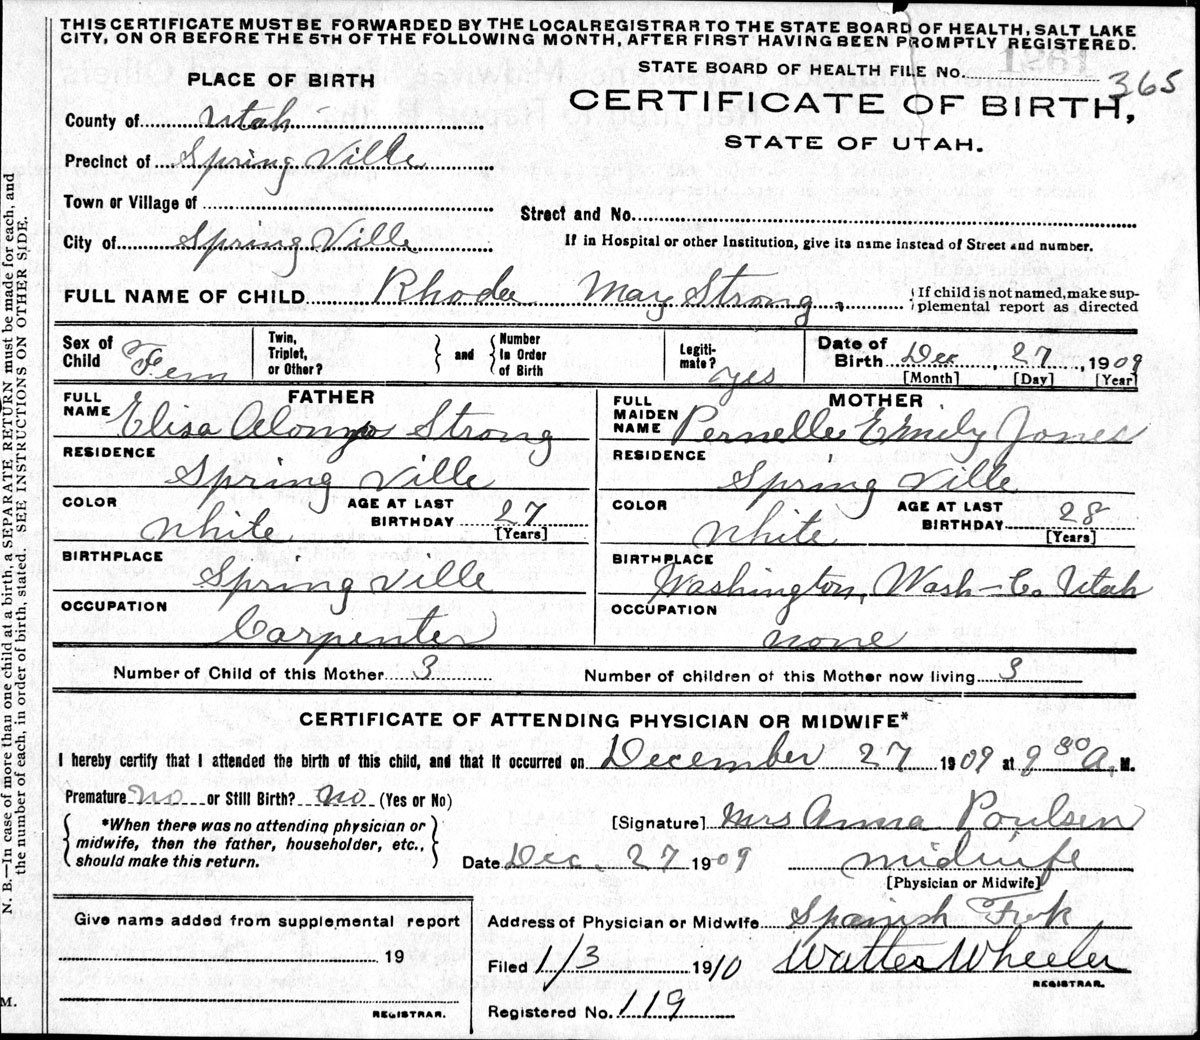 THIS CERTIFICATE MUST BE FORWARDED BY THE LOCALREGISTRAR TO THE STATE BOARD OF HEALTH, SALT LAKE
CITY, ON OR BEFORE THE 5TH OF THE FOLLOWING MONTH, AFTER FIRST HAVING BEEN PROMPTLY REGISTERED.
PLACE OF BIRTH
STATE BOARD OF HEALTH FILE No. 365
CERTIFICATE OF BIRTH,
STATE OF UTAH.
County of Utah
Precinct of Spring Ville
Town or Village of
Street and No.
City of Spring Ville
If in Hospital or other Institution, give its name instead of Street and number.
FULL NAME OF CHILD Rhoda May Strong.
{If child is not named, make sup-
plemental report as directed
Sex of Child Fem
Twin, Triplet, or Other?
} and {
Number In Order of Birth
Legiti-mate? yes
Date of Birth Dec, 27, 1909
[Month] [Day] [Year]
FATHER
FULL NAME Elisa Alonzo Strong
MOTHER
FULL MAIDEN NAME Pernellie Emily Jones
RESIDENCE Spring Ville
RESIDENCE Spring Ville
COLOR White
AGE AT LAST BIRTHDAY 27 [Years]
COLOR White
AGE AT LAST BIRTHDAY 28 [Years]
BIRTHPLACE Spring ville
BIRTHPLACE Washington, Wash-Co Utah
OCCUPATION Carpenter
OCCUPATION none
Number of Child of this Mother 3
Number of children of this Mother now living 3
CERTIFICATE OF ATTENDING PHYSICIAN OR MIDWIFE*
I hereby certify that I attended the birth of this child, and that it occurred on December 27 1909 at 9 30 A. M.
Premature no or Still Birth? no (Yes or No)
{ *When there was no attending physician or
midwife, then the father, householder, etc.,
should make this return. }
[Signature] Mrs Anna Poulsen
Date Dec. 27 1909
midwife
[Physician or Midwife]
Give name added from supplemental report
19
REGISTRAR.
Address of Physician or Midwife Spanish Fork
Filed 1/3 1910 Walter Wheeler
REGISTRAR.
Registered No. 119
N. B.—In case of more than one child at a birth, a SEPARATE RETURN must be made for each, and
the number of each, in order of birth, stated. SEE INSTRUCTIONS ON OTHER SIDE.
M.